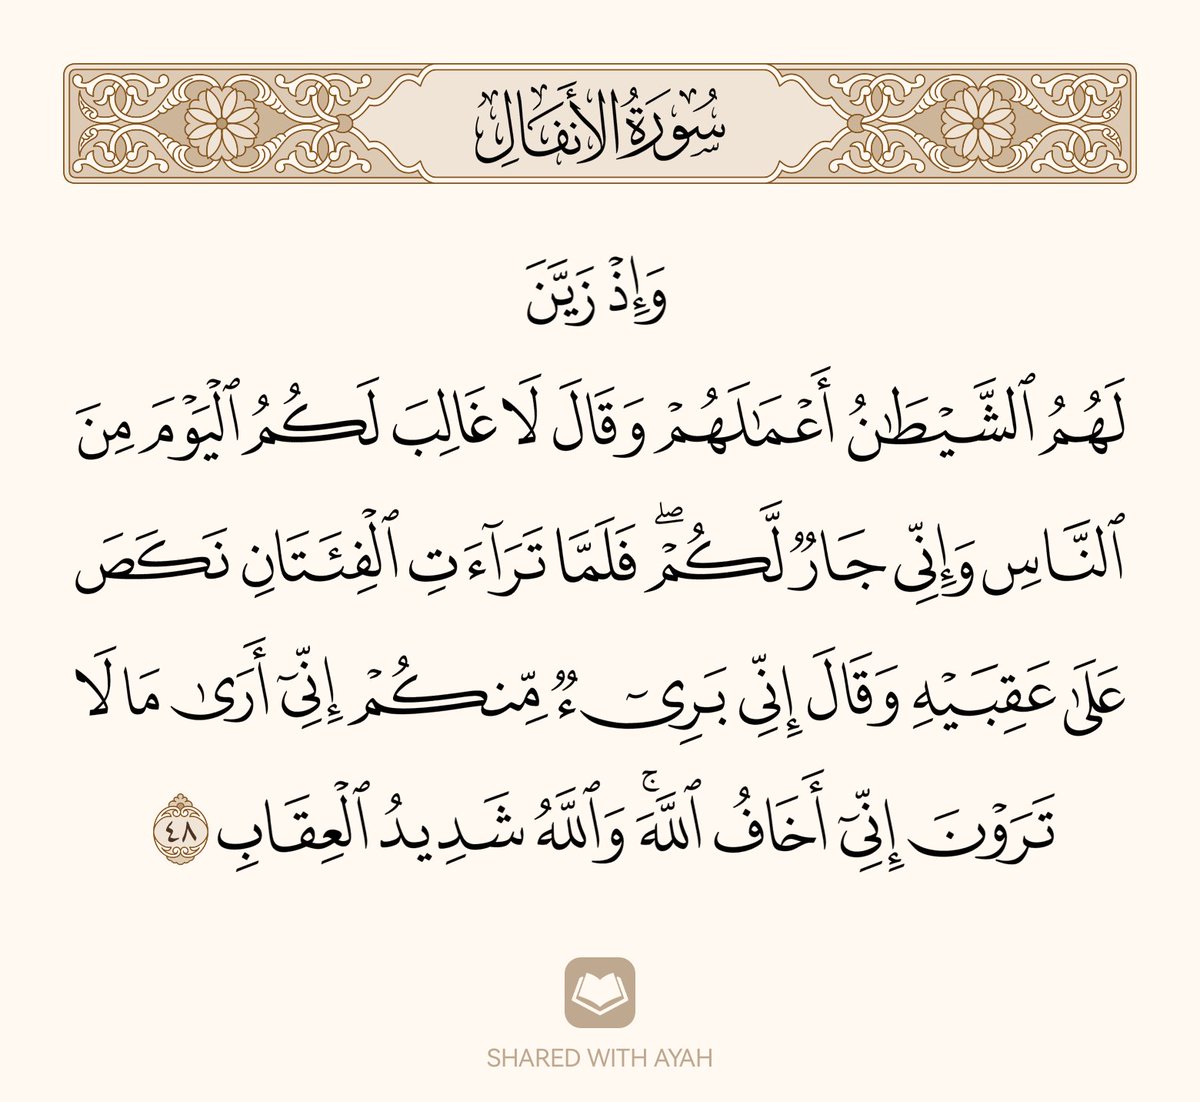 سُورَةُ الأَنفَالِ
وَإِذۡ زَيَّنَ
لَهُمُ ٱلشَّيۡطَٰنُ أَعۡمَٰلَهُمۡ وَقَالَ لَا غَالِبَ لَكُمُ ٱلۡيَوۡمَ مِنَ
ٱلنَّاسِ وَإِنِّي جَارٞ لَّكُمۡۖ فَلَمَّا تَرَآءَتِ ٱلۡفِئَتَانِ نَكَصَ
عَلَىٰ عَقِبَيۡهِ وَقَالَ إِنِّي بَرِيٓءٞ مِّنكُمۡ إِنِّيٓ أَرَىٰ مَا لَا
تَرَوۡنَ إِنِّيٓ أَخَافُ ٱللَّهَۚ وَٱللَّهُ شَدِيدُ ٱلۡعِقَابِ ٤٨
SHARED WITH AYAH